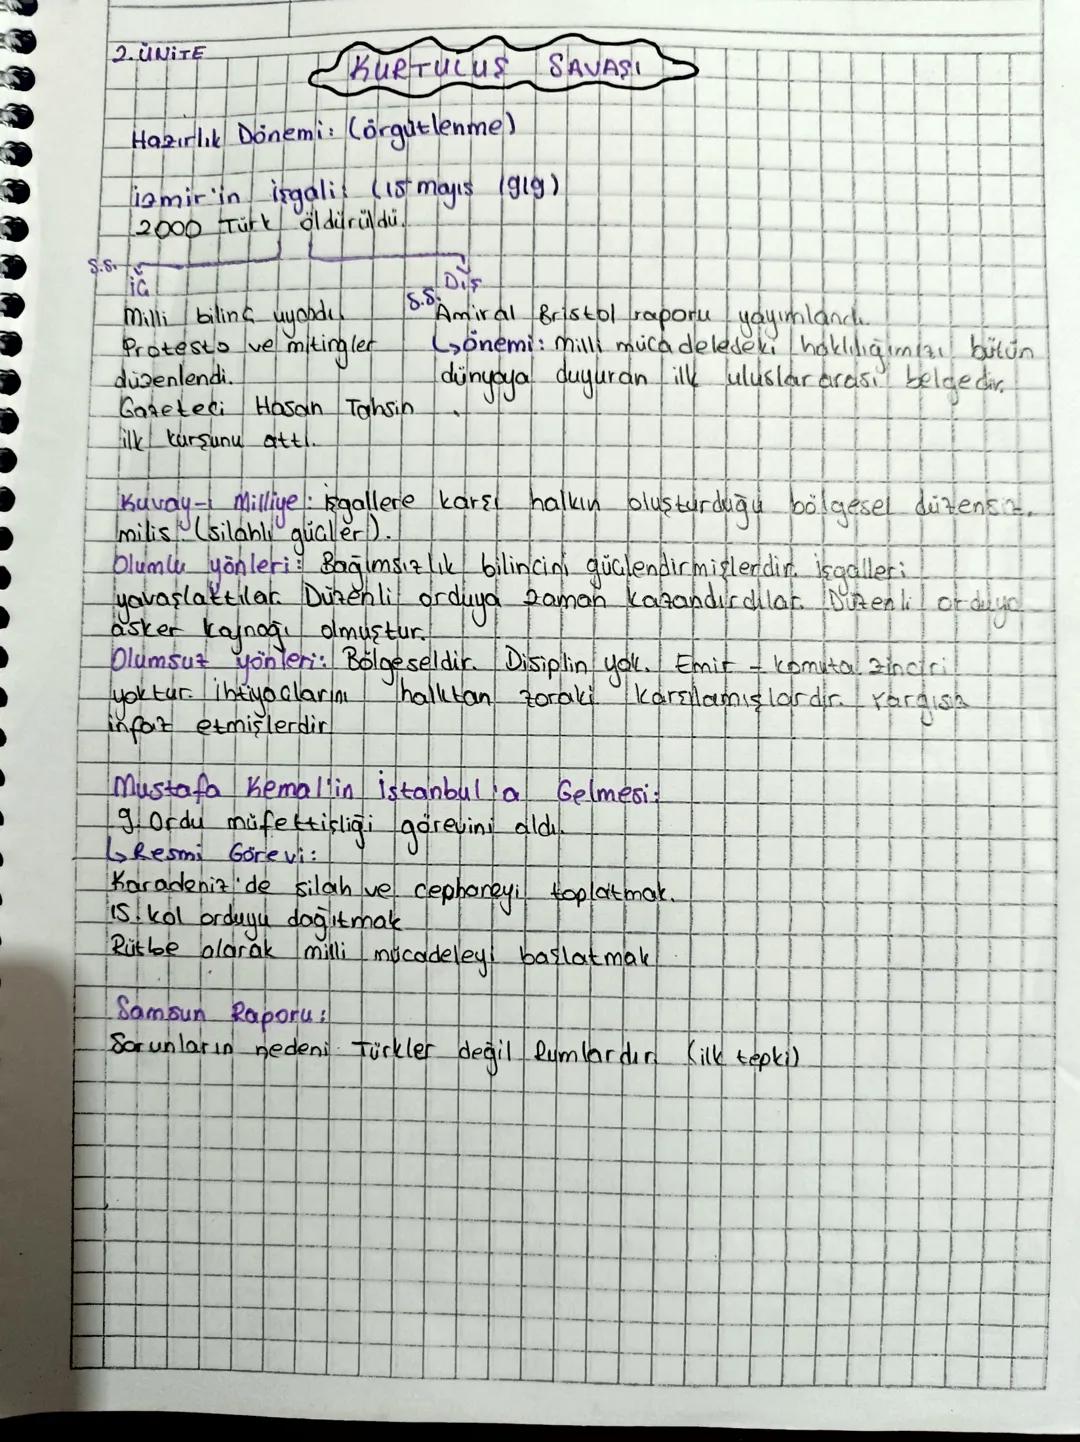 2. ÜNİTE
KURTULUŞ SAVAŞI
Hazırlık Dönemi: (örgütlenme)
İzmir'in işgali: (15 mayıs 1919)
2000 Türk öldürüldü.
S.S. İÇ
Milli bilinç uyandı.
Protesto ve mitingler
düzenlendi.
Gazeteci Hasan Tahsin
ilk kurşunu attı.
S.S. Dış
Amiral Bristol raporu yayımlandı.
↳önemi: milli mücadeledeki haklılığımızı bütün
dünyaya duyuran ilk uluslar arası belgedir.
Kuvay-ı Milliye: işgallere karşı halkın oluşturduğu bölgesel düzensiz.
milis (silahlı güçler).
Olumlu yönleri: Bağımsızlık bilincini güçlendirmişlerdir. işgalleri
yavaşlattılar. Düzenli orduya zaman kazandırdılar. Düzenli orduya
asker kaynağı olmuştur.
Olumsuz yönleri: Bölgeseldir. Disiplin yok. Emir - komuta zinciri
yoktur. ihtiyaçlarını halktan zoraki karşılamışlardır. Yargısız
infaz etmişlerdir.
Mustafa Kemal'in İstanbul'a Gelmesi:
9. Ordu müfettişliği görevini aldı.
↳Resmi Görevi:
Karadeniz'de silah ve cephaneyi toplatmak.
15. kol orduyu dağıtmak
Rütbe olarak milli mücadeleyi başlatmak
Samsun Raporu:
Sorunların nedeni Türkler değil Rumlardır. (ilk tepki)